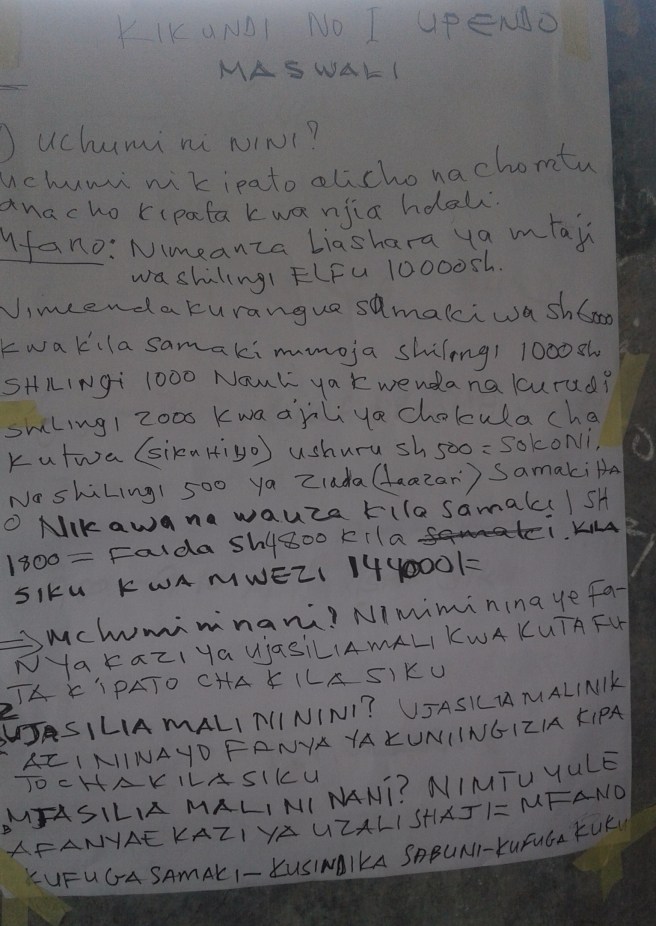 KIKUNDI NO I UPENDO
MASWALI
) Uchumi ni NINI?
uchumi ni kipato alicho nacho mtu
anacho kipata kwa njia hdali.
Mfano: Nimeanza biashara ya mtaji
wa shilingi ELFU 10000sh.
Nimeenda kurangua samaki wa sh 6000
kwa kila samaki mmoja shilingi 1000 sh
SHILINGi 1000 Nauli ya kwenda na kurudi
shilingi 2000 kwa ajili ya chakula cha
kutwa (siku HiyO) ushuru sh 500 = SOKONi.
Na shiLiNGi 500 ya Ziada (taazari) Samaki HA
O NiKAWA na wauza kila samaki 1 SH
1800 = FAIDA Sh4800 kila samaki. KILA
SIKU KWA MWEZI 144000/=
⇒ Mchumi ni nani? Ni mimi ninaye fa-
NYA KAZI YA UJASILIAMALI KWA KUTAFU
TA KIPATO CHA KILA SIKU
2 UJASILIA MALI NI NINI? UJASILIA MALI NI K
AZI NINAYO FANYA YA KUNIINGIZIA KIPA
TO CHA KILA SIKU
MJASILIA MALI NI NANI? NI MTU YULE
AFANYAE KAZI YA UZALISHAJI = MFANO
KUFUGA SAMAKI - KUSINDIKA SABUNI - KUFUGA KUKU